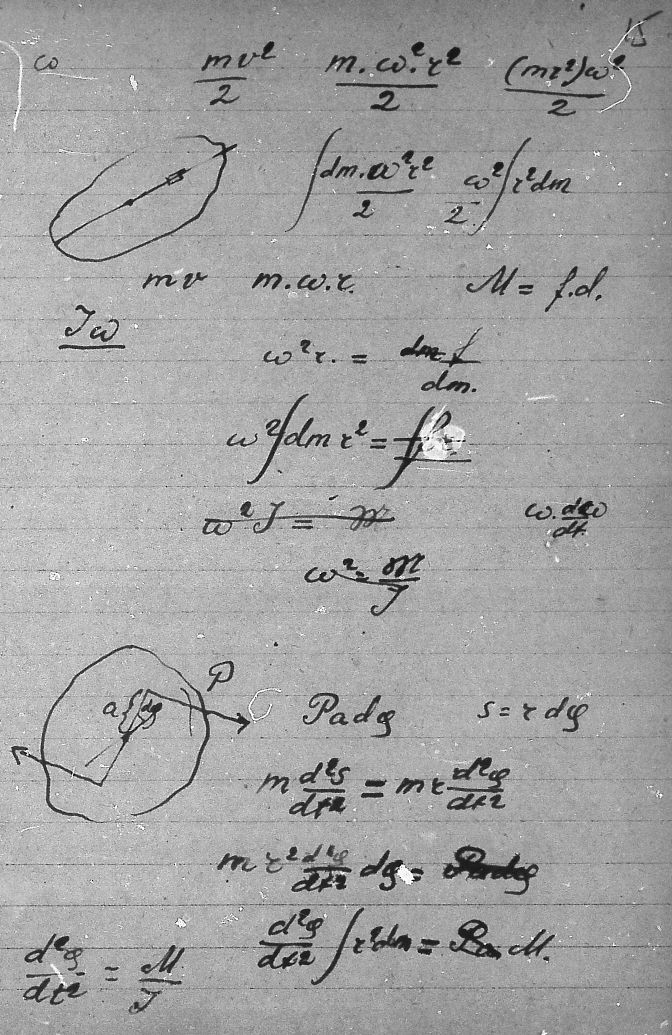 15
ω   mv²/2   m.ω².r²/2   (mr²)ω²/2
∫ dm.ω²r²/2   ω²/2 ∫ r²dm
mv   m.ω.r.   M = f.d.
Jω
ω²r. = f/dm.
ω² ∫ dm r² =
ω²J = M   ω.dω/dt
ω² = M/J
P
a { dφ   Padφ   s = r dφ
m d²s/dt² = mr d²φ/dt²
mr² d²φ/dt² dφ =
d²φ/dt² ∫ r²dm = M.
d²φ/dt² = M/J